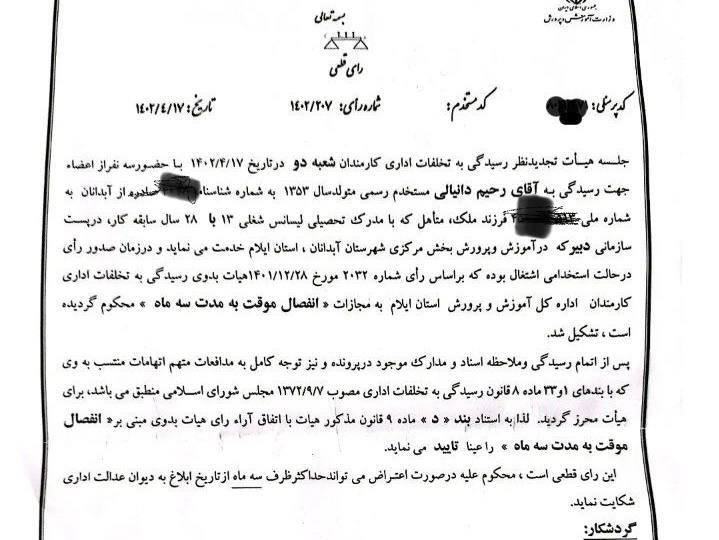 جمهوری اسلامی ایران
وزارت آموزش و پرورش
بسمه تعالی
رای قطعی
کد پرسنلی: کد مستخدم: شماره رأی: ۱۴۰۲/۲۰۷ تاریخ: ۱۴۰۲/۴/۱۷
جلسه هیأت تجدیدنظر رسیدگی به تخلفات اداری کارمندان شعبه دو درتاریخ ۱۴۰۲/۴/۱۷ با حضورسه نفراز اعضاء
جهت رسیدگی به آقای رحیم دانیالی مستخدم رسمی متولدسال ۱۳۵۳ به شماره شناسنامه صادره از آبدانان به
شماره ملی فرزند ملک، متأهل که با مدرک تحصیلی لیسانس شغلی ۱۳ با ۲۸ سال سابقه کار، درپست
سازمانی دبیرکه درآموزش وپرورش بخش مرکزی شهرستان آبدانان ، استان ایلام خدمت می نماید و درزمان صدور رأی
درحالت استخدامی اشتغال بوده که براساس رأی شماره ۲۰۳۲ مورخ ۱۴۰۱/۱۲/۲۸هیات بدوی رسیدگی به تخلفات اداری
کارمندان اداره کل آموزش و پرورش استان ایلام به مجازات « انفصال موقت به مدت سه ماه » محکوم گردیده
است ، تشکیل شد.
پس از اتمام رسیدگی وملاحظه اسناد و مدارک موجود درپرونده و نیز توجه کامل به مدافعات متهم اتهامات منتسب به وی
که با بندهای ۱و۳۳ ماده ۸ قانون رسیدگی به تخلفات اداری مصوب ۱۳۷۲/۹/۷ مجلس شورای اسلامی منطبق می باشد، برای
هیأت محرز گردید. لذا به استناد بند « د » ماده ۹ قانون مذکور هیات با اتفاق آراء رای هیات بدوی مبنی بر« انفصال
موقت به مدت سه ماه » را عینا تایید می نماید.
این رای قطعی است ، محکوم علیه درصورت اعتراض می تواندحداکثرظرف سه ماه ازتاریخ ابلاغ به دیوان عدالت اداری
شکایت نماید.
گردشکار: